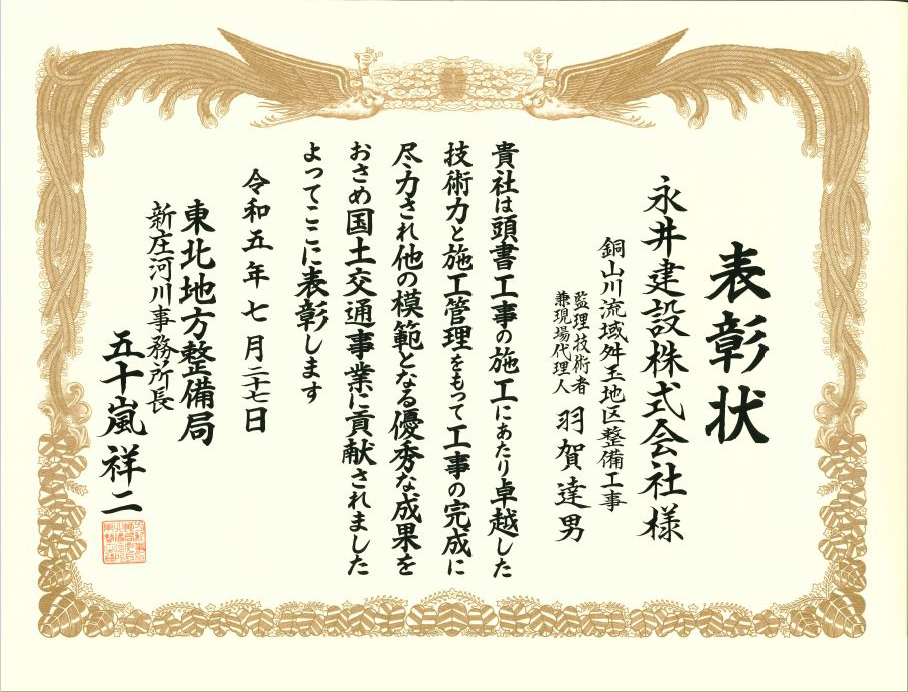 表彰状
永井建設株式会社様
銅山川流域舛玉地区整備工事
監理技術者
兼現場代理人
羽賀達男
貴社は頭書工事の施工にあたり卓越した
技術力と施工管理をもって工事の完成に
尽力され他の模範となる優秀な成果を
おさめ国土交通事業に貢献されました
よってここに表彰します
令和五年七月二十七日
東北地方整備局
新庄河川事務所長
五十嵐祥二